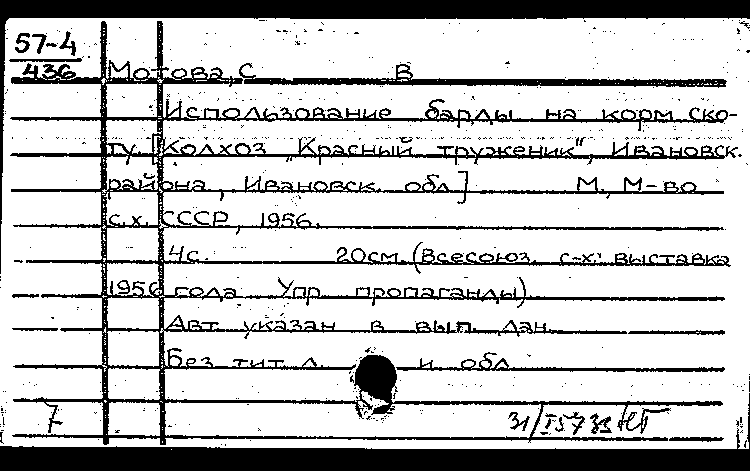 57-4
436 Мотова, С В
Использование барды на корм ско-
ту [Колхоз „Красный труженик", Ивановск.
района, Ивановск. обл] М., М-во
с.х. СССР, 1956.
4с. 20см. (Всесоюз. с-х. выставка
1956 года Упр пропаганды)
Авт указан в вып. дан.
Без тит л. и обл
7